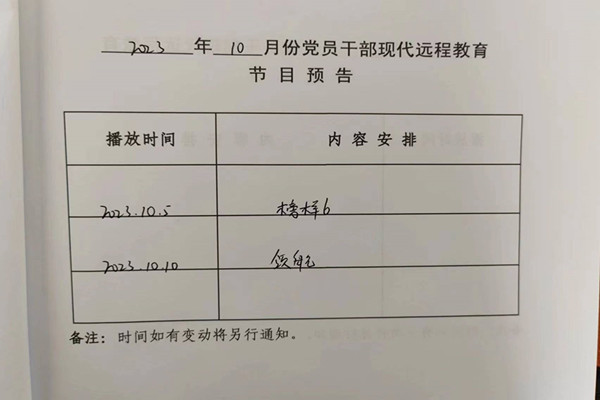 2023 年 10 月份党员干部现代远程教育
节目预告
播放时间 内容安排
2023.10.5 榜样6
2023.10.10 领航
备注：时间如有变动将另行通知。